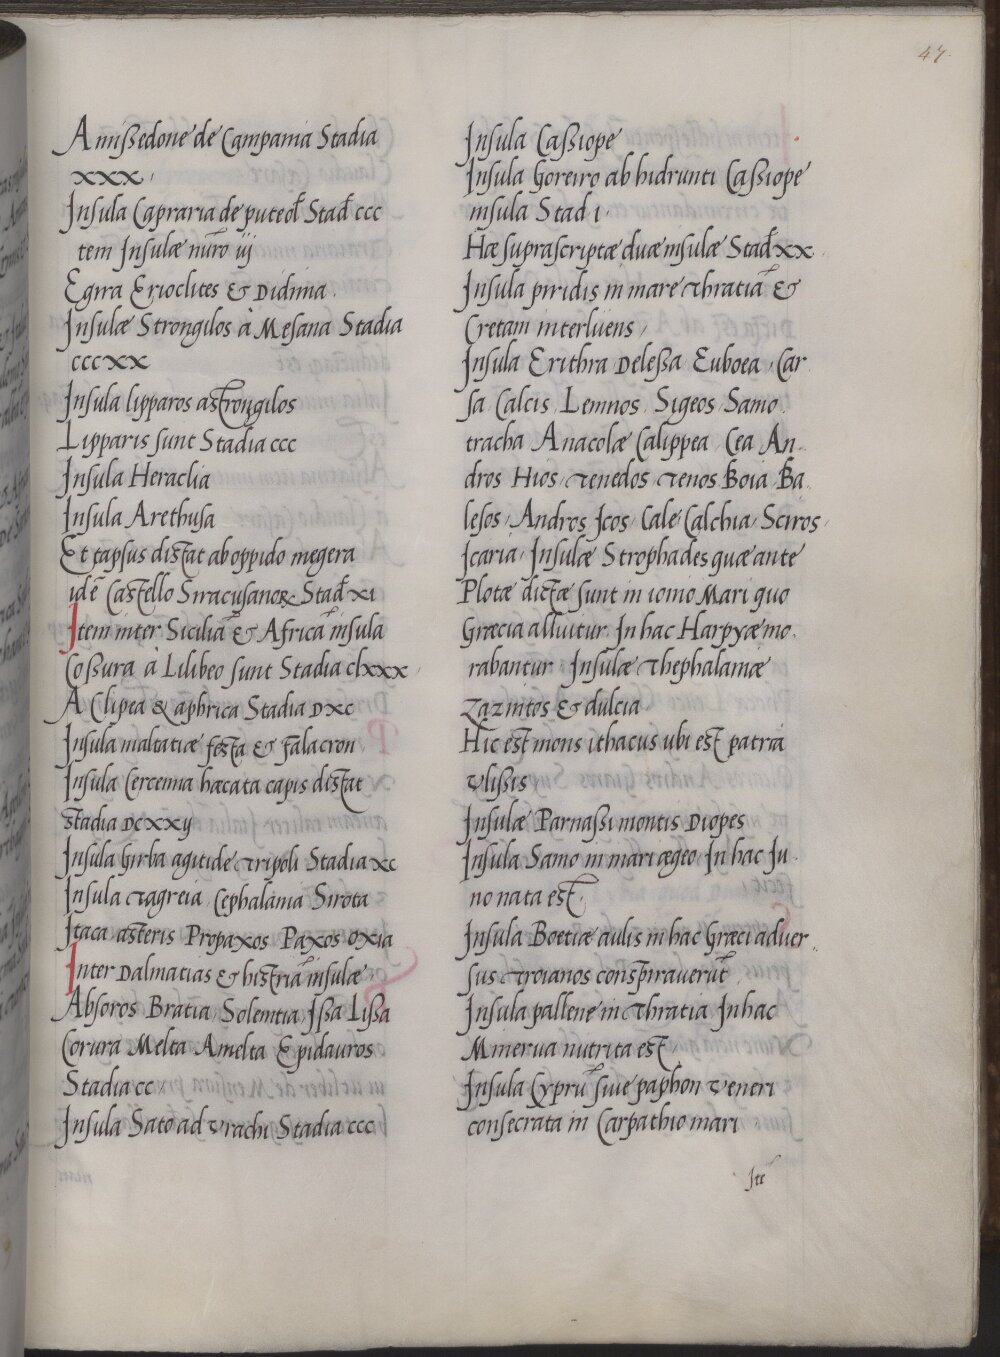 47.
A missedone de Campania Stadia
xxx,
Insula Capraria de puteol̄ Stad̄ ccc
tem Insulæ nūro iij
Egira Erioclites & Didima.
Insulæ Strongilos à Mesana Stadia
cccxx
Insula lipparos astrongilos
Lipparis sunt Stadia ccc
Insula Heraclia
Insula Arethusa
Et tapsus distat ab oppido megera
idē Castello Siracusanoꝝ Stad̄ xi
Item inter Siciliā & Africā insula
Cossura à Lilibeo sunt Stadia clxxx,
A Clipea & aphrica Stadia DXC
Insula maltatiæ festa & falacron
Insula Cercenna hacata capis distat
stadia DCXXij
Insula Girba agitide Tripoli Stadia XC
Insula Tagreia Cephalania Sirota
Itaca asteris Propaxos Paxos Oxia
Inter Dalmatias & histriā insulæ
Absoros Bratia Solentia Issa Lissa
Corura Melta Amelta Epidauros
Stadia CC
Insula Sato ad Vrachi Stadia ccc
Insula Cassiope
Insula Goreiro ab hidrunti Cassiope
insula Stad i.
Hæ suprascriptæ duæ insulæ Stad̄ XX.
Insula piridis in mare Thratiā &
Cretam interluens,
Insula Erithra Delessa Euboea, Car
sa, Calcis, Lemnos, Sigeos Samo.
tracha Anacolæ Calippea, Cea An.
dros Hios, Tenedos Tenos Boia Ba.
lesos, Andros Icos, Cale Calchia, Sciros,
Icaria, Insulæ Strophades quæ ante
Plotæ dictæ sunt in ionio Mari quo
Græcia alluitur. In hac Harpyæ mo.
rabantur Insulæ Thephalaniæ
Zazintos & dulcia
Hic est mons ithacus ubi est patria
Vlissis
Insulæ Parnassi montis Diopes
Insula Samo in mari ægeo In hac Iu.
no nata est,
Insula Boetiæ aulis in hac Græci aduer.
sus Troianos conspirauerūt
Insula pallene in Thratia In hac
Minerua nutrita est,
Insula Cyprū siue paphon Veneri
consecrata in Carpathio mari
Itē